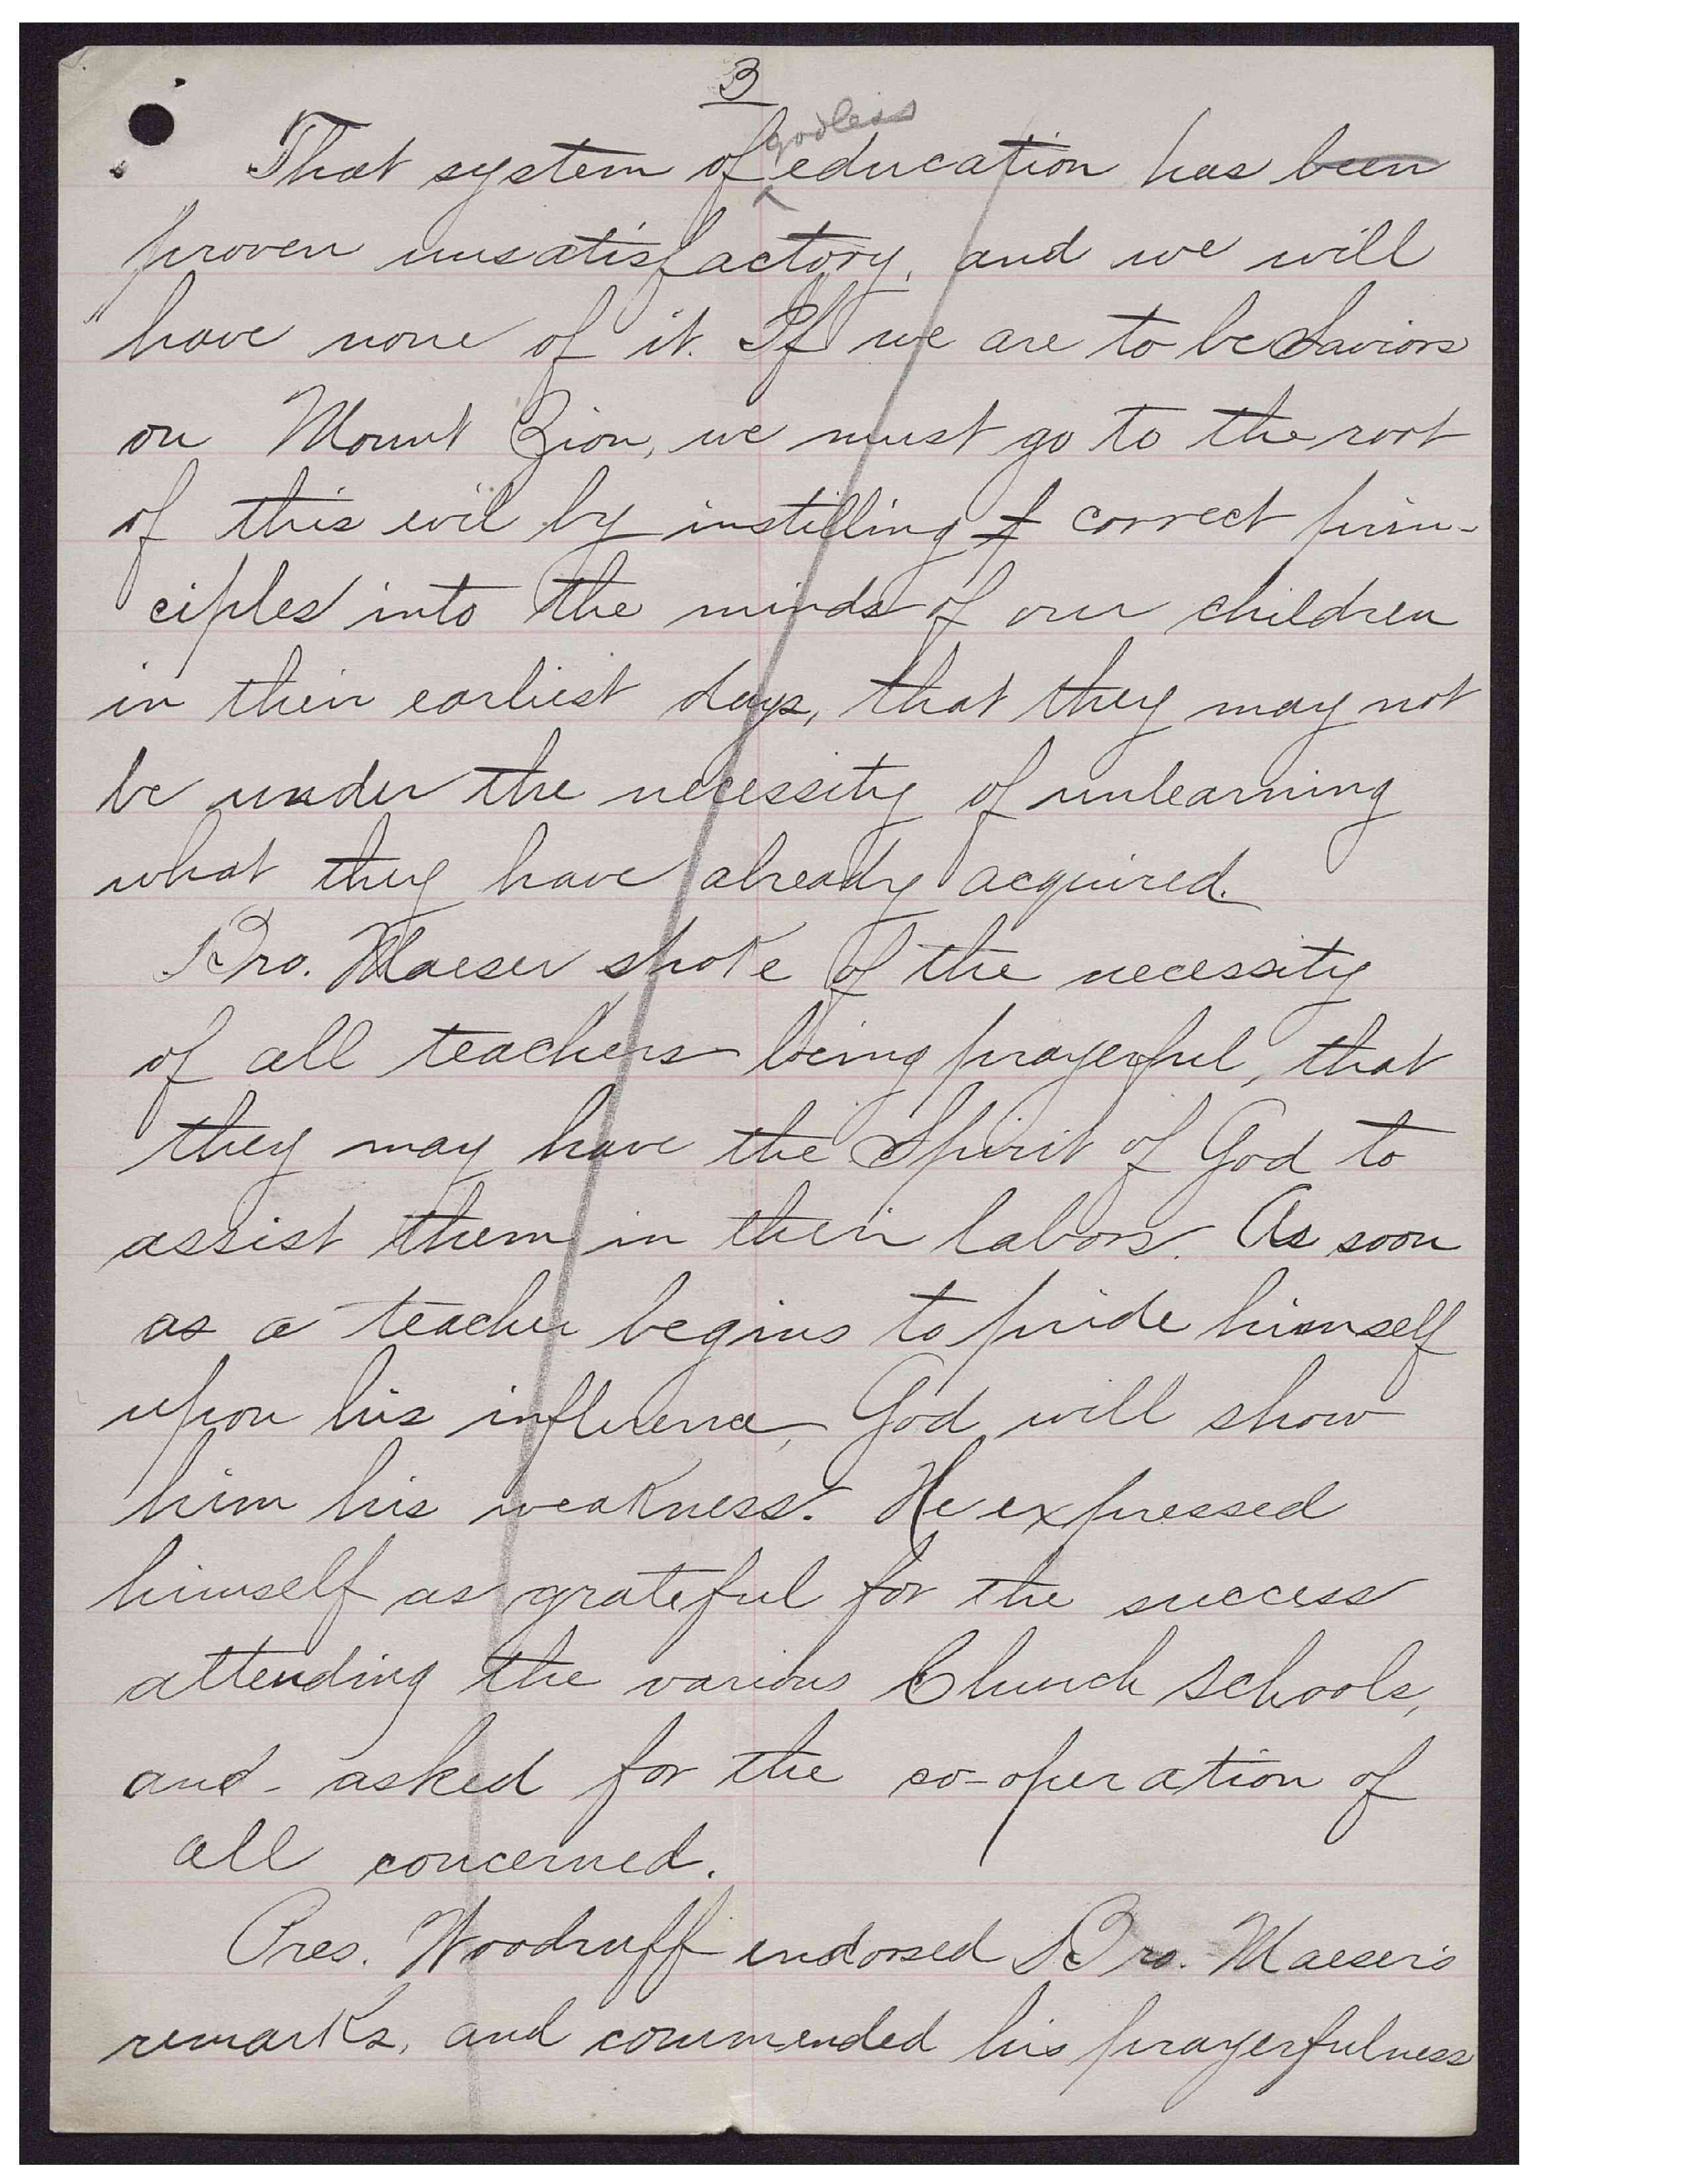 3
That system of godless education has been
proven unsatisfactory, and we will
have none of it. If we are to be Saviors
on Mount Zion, we must go to the root
of this evil by instilling f correct prin-
ciples into the minds of our children
in their earliest days, that they may not
be under the necessity of unlearning
what they have already acquired.
Bro. Maeser spoke of the necessity
of all teachers being prayerful, that
they may have the Spirit of God to
assist them in their labors. As soon
as a teacher begins to pride himself
upon his influence, God will show
him his weakness. He expressed
himself as grateful for the success
attending the various Church schools,
and asked for the co-operation of
all concerned.
Pres. Woodruff endorsed Bro. Maeser's
remarks, and commended his prayerfulness